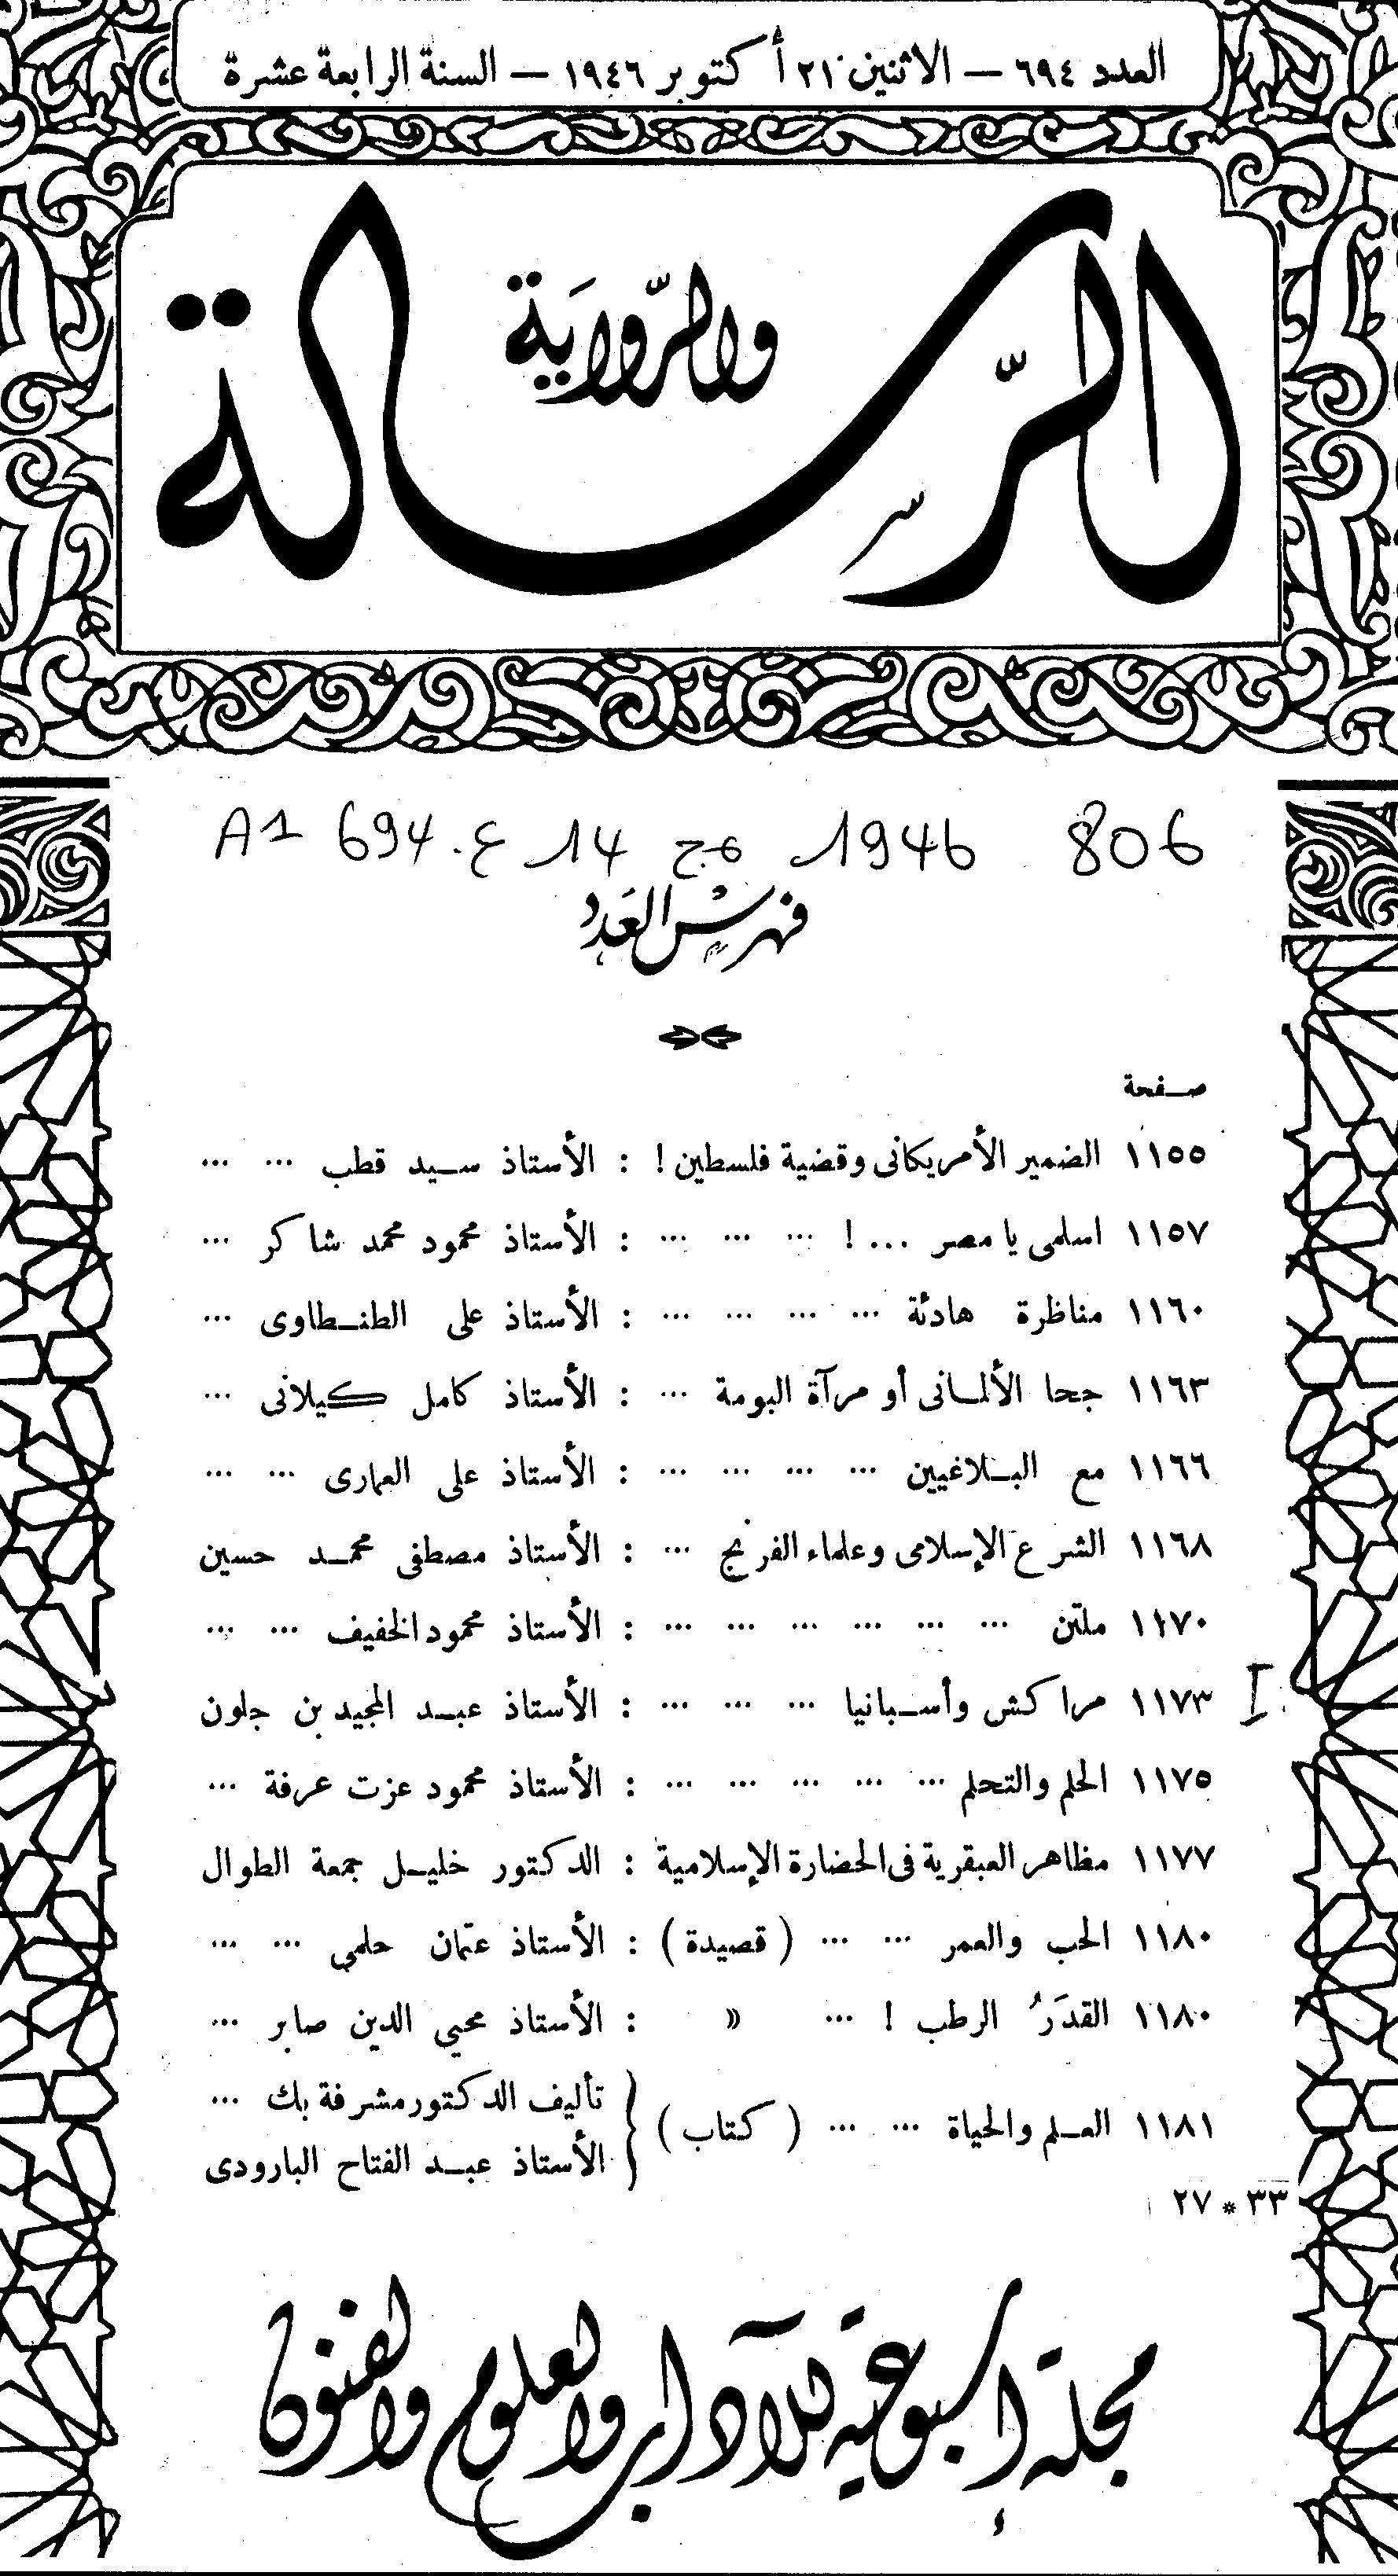 العدد ٦٩٤ — الاثنين ٢١ أكتوبر ١٩٤٦ — السنة الرابعة عشرة
الرّسالة
والرّواية
A1 694 .ع 14 مج 1946 806
فهرس العَدد
صفحة
١١٥٥ الضمير الأمريكانى وقضية فلسطين ! : الأستاذ سيد قطب ... ...
١١٥٧ اسلمى يا مصر ... ! ... ... ... : الأستاذ محمود محمد شاكر ...
١١٦٠ مناظرة هادئة ... ... ... ... : الأستاذ على الطنطاوى ...
١١٦٣ جحا الألمانى أو مرآة البومة ... : الأستاذ كامل كيلانى ...
١١٦٦ مع البلاغيين ... ... ... ... : الأستاذ على العمارى ... ...
١١٦٨ الشرع الإسلامى وعلماء الفرنج ... : الأستاذ مصطفى محمد حسين
١١٧٠ ملتن ... ... ... ... ... ... : الأستاذ محمود الخفيف ... ...
١١٧٣ مراكش وأسبانيا ... ... ... : الأستاذ عبد المجيد بن جلون
١١٧٥ الحلم والتحلم ... ... ... ... ... : الأستاذ محمود عزت عرفة ...
١١٧٧ مظاهر العبقرية فى الحضارة الإسلامية : الدكتور خليل جمعة الطوال
١١٨٠ الحب والعمر ... ... ( قصيدة ) : الأستاذ عثمان حلمى ... ...
١١٨٠ القدَرُ الرطب ! ... » : الأستاذ محيي الدين صابر ...
١١٨١ العلم والحياة ... ... ( كتاب ) { تأليف الدكتور مشرفة بك ...
الأستاذ عبد الفتاح البارودى
٣٣ * ٢٧
مجلة أسبوعية للآداب والعلوم والفنون